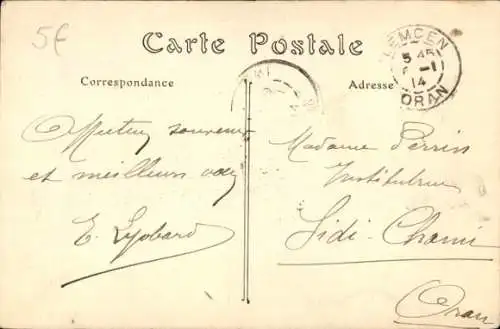 5€
Carte Postale
Correspondance
Adresse
TLEMCEN
5 45
-1
14
ORAN
Affectueux souvenirs
et meilleurs
E. Lyobard
Madame Perrin
Institutrice
Sidi-Chami
Oran